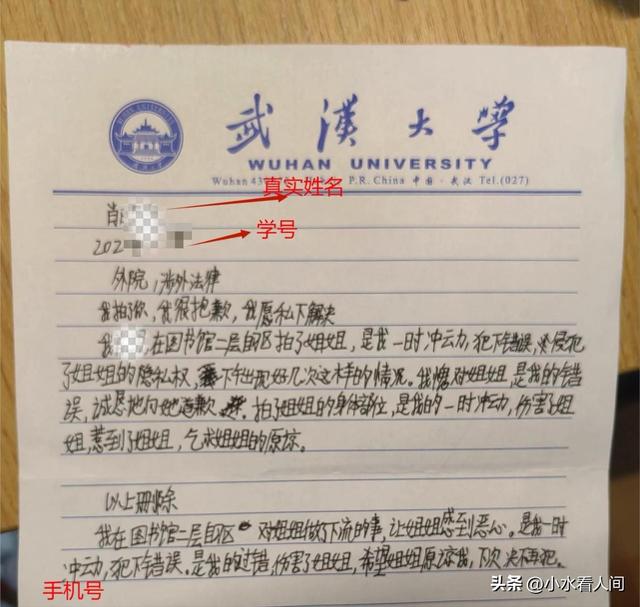 武漢大學
WUHAN UNIVERSITY
Wuhan 43 P.R. China 中国·武汉 Tel.(027)
真实姓名
肖
202
学号
外院,涉外法律
我拍了你,我很抱歉,我愿私下解决
我 ,在图书馆二层B区拍了姐姐,是我一时冲动,犯下错误,侵犯
了姐姐的隐私权,下午出现好几次这样的情况。我愧对姐姐,是我的错
误,诚恳地向她道歉。拍了姐姐的身体部位,是我的一时冲动,伤害了姐
姐,惹到了姐姐,乞求姐姐的原谅。
以上删除
我在图书馆二层B区 对姐姐做了下流的事,让姐姐感到恶心。是我一时
冲动,犯下错误。是我的过错,伤害了姐姐,希望姐姐原谅我,下次决不再犯。
手机号
头条 @小水看人间